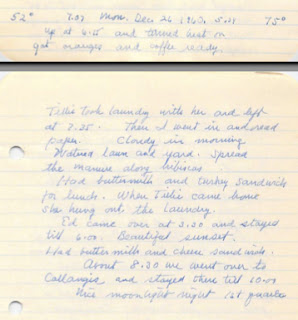 52° 7.07 Mon. Dec 26 1960, 5.11 75°
up at 6.15 and turned heat on
got oranges and coffee ready.
Tillie took laundry with her and left
at 7.25. Then I went in and read
paper. Cloudy in morning
Watered lawn and yard. Spread
the manure along hibiscus
Had buttermilk and turkey sandwich
for lunch. When Tillie came home
she hung out the laundry.
Ed came over at 3.30 and stayed
till 6.00. Beautiful sunset.
Had buttermilk and cheese sandwich.
About 8.30 we went over to
and stayed there till 10.00
Nice moonlight night 1st quarter